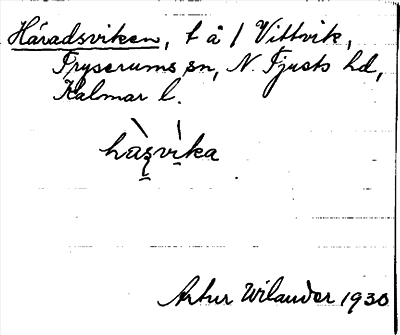 Häradsviken, t å / Vittvik,
Tryserums sn, N. Tjusts hd,
Kalmar l.
hàʂvìka
Artur Wilander 1930